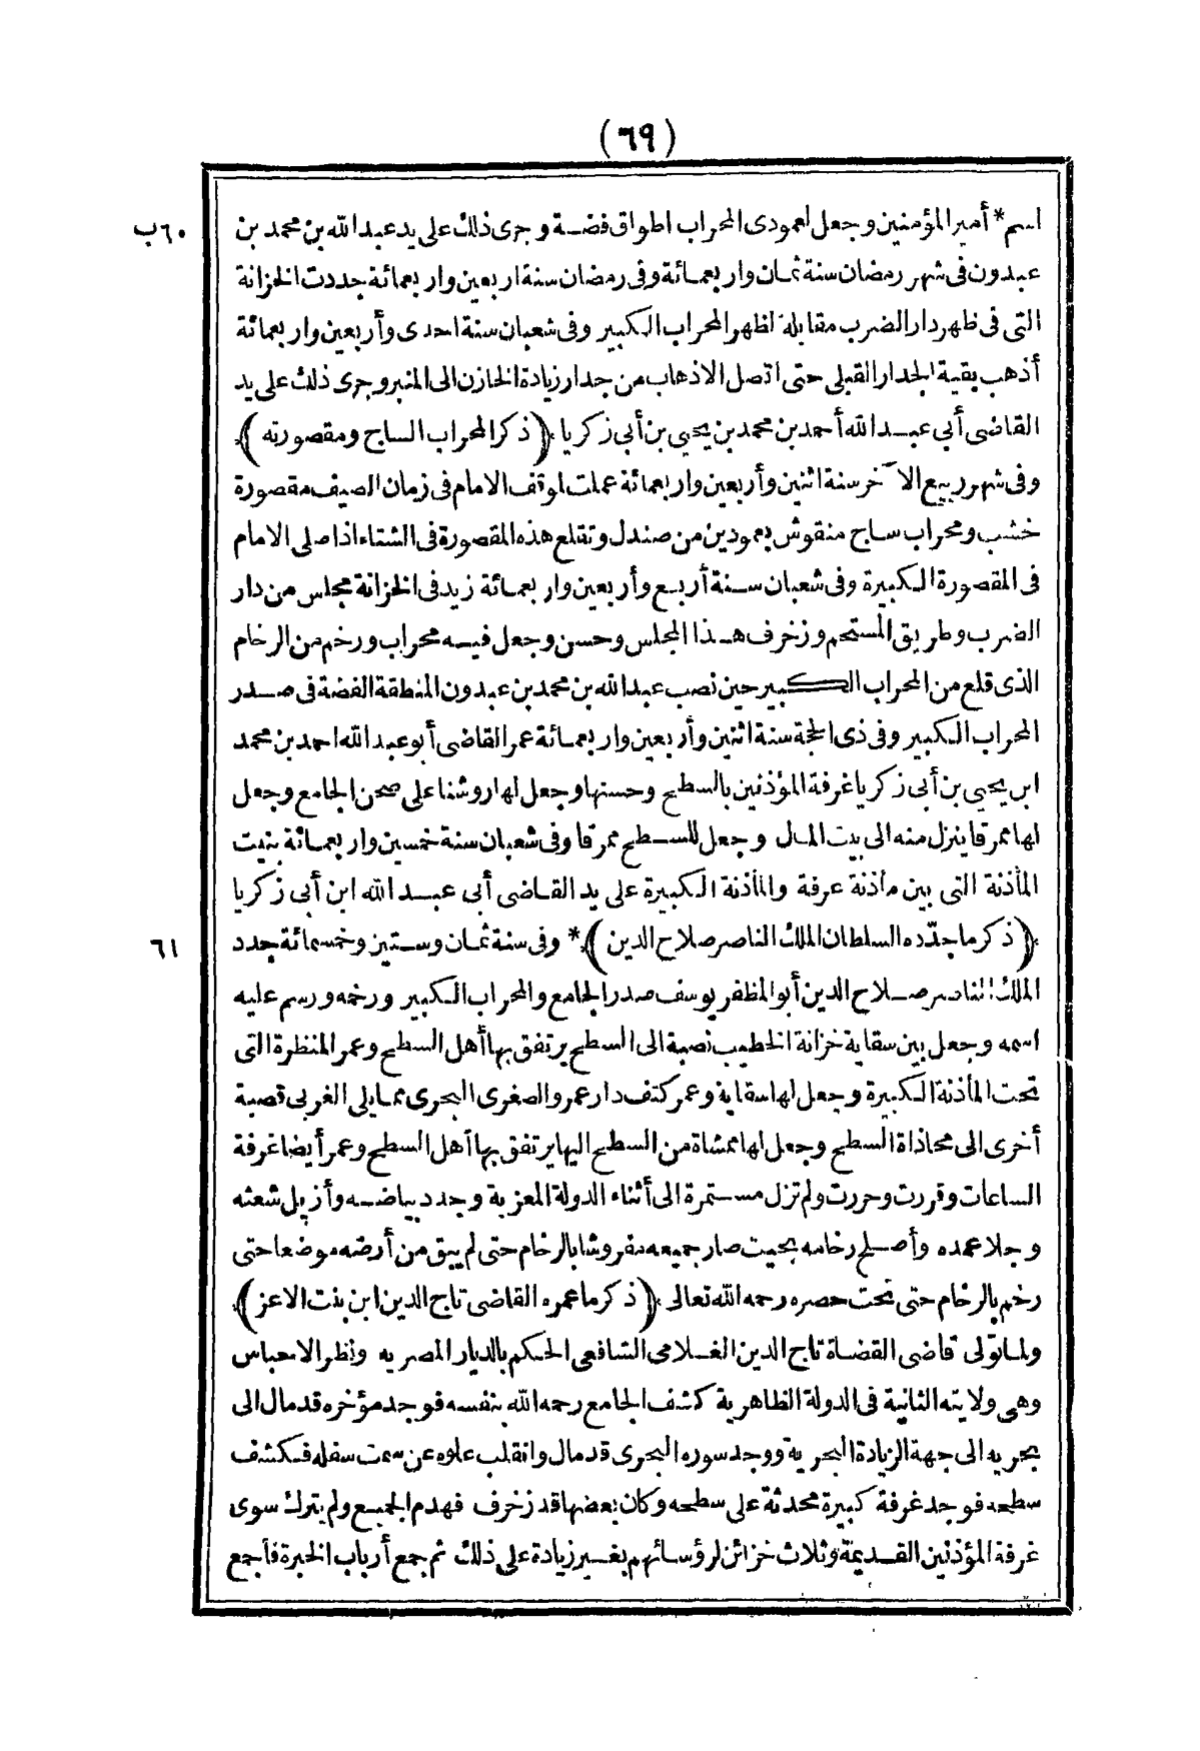 (٦٩)
اسم * أمير المؤمنين وجعل لعمودى المحراب اطواق فضة وجرى ذلك على يد عبد الله بن محمد بن
٦٠ب
عبدون فى شهر رمضان سنة ثمان واربعمائة وفى رمضان سنة اربعين واربعمائة جددت الخزانة
التى فى ظهر دار الضرب مقابلة لظهر المحراب الكبير وفى شعبان سنة احدى وأربعين واربعمائة
أذهب بقية الجدار القبلى حتى اتصل الاذهاب من جدار زيادة الخازن الى المنبر وجرى ذلك على يد
القاضى أبى عبد الله أحمد بن محمد بن يحيى بن أبى زكريا (ذكر المحراب الساج ومقصورته)
وفى شهر ربيع الآخر سنة اثنين وأربعين واربعمائة عملت لموقف الامام فى زمان الصيف مقصورة
خشب ومحراب ساج منقوش بعمودين من صندل وتقلع هذه المقصورة فى الشتاء اذا صلى الامام
فى المقصورة الكبيرة وفى شعبان سنة أربع وأربعين واربعمائة زيد فى الخزانة مجلس من دار
الضرب وطريق المستحم وزخرف هذا المجلس وحسن وجعل فيه محراب ورخم من الرخام
الذى قلع من المحراب الكبير حين نصب عبد الله بن محمد بن عبدون المنطقة الفضة فى صدر
المحراب الكبير وفى ذى الحجة سنة اثنين وأربعين واربعمائة عمر القاضى أبو عبد الله احمد بن محمد
ابن يحيى بن أبى زكريا غرفة المؤذنين بالسطح وحسنها وجعل لها روشنا على صحن الجامع وجعل
لها ممرقا ينزل منه الى بيت المال وجعل للسطح ممرقا وفى شعبان سنة خمسين واربعمائة بنيت
المأذنة التى بين مأذنة عرفة والمأذنة الكبيرة على يد القاضى أبى عبد الله ابن أبى زكريا
(ذكر ما جدّده السلطان الملك الناصر صلاح الدين) * وفى سنة ثمان وستين وخمسمائة جدد
٦١
الملك الناصر صلاح الدين أبو المظفر يوسف صدر الجامع والمحراب الكبير ورخمه ورسم عليه
اسمه وجعل بين سقاية خزانة الخطيب نصبة الى السطح يرتفق بها أهل السطح وعمر المنظرة التى
تحت المأذنة الكبيرة وجعل لها سقاية وعمر كتف دار عمرو الصغرى البحرى مما يلى الغربى قصبة
أخرى الى محاذاة السطح وجعل لها ممشاة من السطح اليها يرتفق بها أهل السطح وعمر أيضا غرفة
الساعات وقررت وحررت ولم تزل مستمرة الى أثناء الدولة المعزية وجدد بياضه وأزيل شعثه
وجلا عمده وأصلح رخامه بحيث صار جميعه مفروشا بالرخام حتى لم يبق من أرضه موضعا حتى
رخم بالرخام حتى تحت حصره رحمه الله تعالى (ذكر ما عمره القاضى تاج الدين ابن بنت الاعز)
ولما تولى قاضى القضاة تاج الدين الغلامى الشافعى الحكم بالديار المصريه ونظر الاحباس
وهى ولايته الثانية فى الدولة الظاهرية كشف الجامع رحمه الله بنفسه فوجد مؤخره قد مال الى
بحريه الى جهة الزيادة البحرية ووجد سوره البحرى قد مال وانقلب علوه عن سمت سفله فكشف
سطحه فوجد غرفة كبيرة محدثة على سطحه وكان بعضها قد زخرف فهدم الجميع ولم يترك سوى
غرفة المؤذنين القديمة وثلاث خزائن لرؤسائهم بغير زيادة على ذلك ثم جمع أرباب الخبرة فأجمع